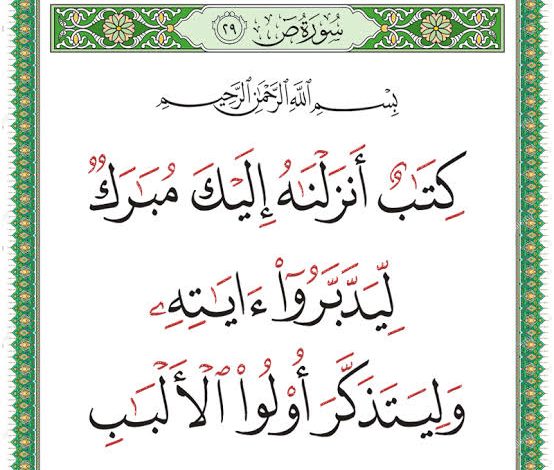 سُورَةُ صٓ ٢٩
بِسْمِ ٱللَّهِ ٱلرَّحْمَٰنِ ٱلرَّحِيمِ
كِتَٰبٌ أَنزَلْنَٰهُ إِلَيْكَ مُبَٰرَكٌ
لِّيَدَّبَّرُوٓا۟ ءَايَٰتِهِۦ
وَلِيَتَذَكَّرَ أُو۟لُوا۟ ٱلْأَلْبَٰبِ